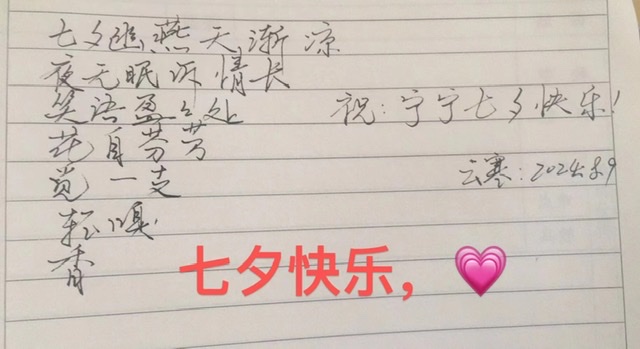 七夕幽燕天渐凉
夜无眠诉情长
笑语盈盈处
花自芬芳
觅一支
轻嗅
香
祝:宁宁七夕快乐!
云寒:2024.8.9
七夕快乐,💗